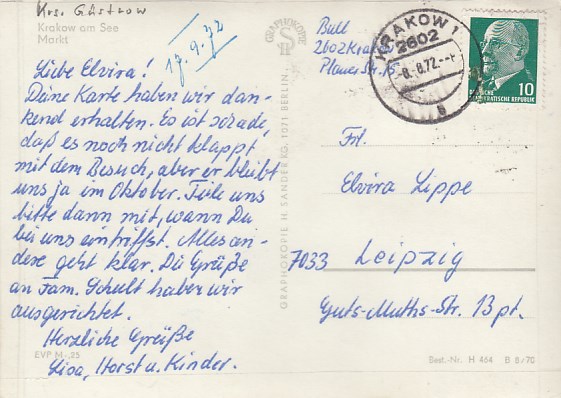 Krs. Güstrow
Krakow am See
Markt
17.9.72
Liebe Elvira!
Deine Karte haben wir dan-
kend erhalten. Es ist schade,
daß es noch nicht klappt
mit dem Besuch, aber er bleibt
uns ja im Oktober. Teile uns
bitte dann mit, wann Du
bei uns eintriffst. Alles an-
dere geht klar. Die Grüße
an Fam. Schult haben wir
ausgerichtet.
Herzliche Grüße
Lisa, Horst u. Kinder.
EVP M -,25
GRAPHOKOPIE
GRAPHOKOPIE H. SANDER KG, 1071 BERLIN,
Bull
2602 Krakow
Plauer Str. 15
KRAKOW 1
2602
8.72.--
a
10
DEUTSCHE
DEMOKRATISCHE REPUBLIK
Frl.
Elvira Lippe
7033 Leipzig
Guts-Muths-Str. 13 pt.
Best.-Nr. H 464 B 8/70